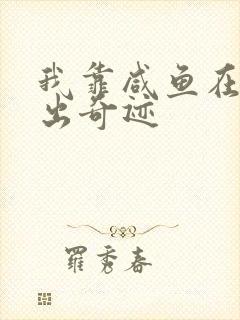 我靠咸鱼在
出奇迹
羅秀春